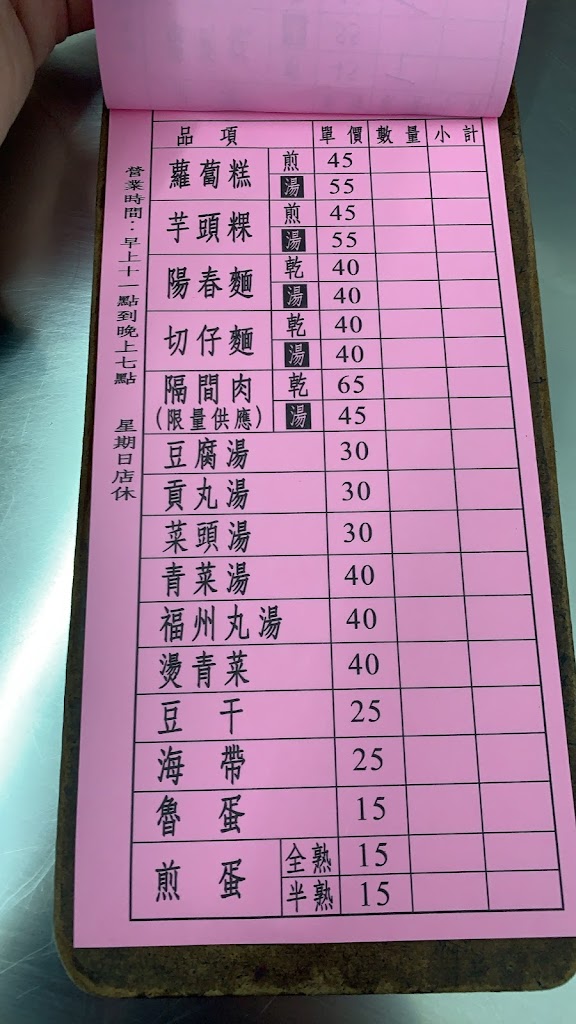 品項 單價 數量 小計
蘿蔔糕 煎 45
湯 55
芋頭粿 煎 45
湯 55
陽春麵 乾 40
湯 40
切仔麵 乾 40
湯 40
隔間肉 乾 65
(限量供應) 湯 45
豆腐湯 30
貢丸湯 30
菜頭湯 30
青菜湯 40
福州丸湯 40
燙青菜 40
豆干 25
海帶 25
魯蛋 15
煎蛋 全熟 15
半熟 15
營業時間：早上十一點到晚上七點 星期日店休